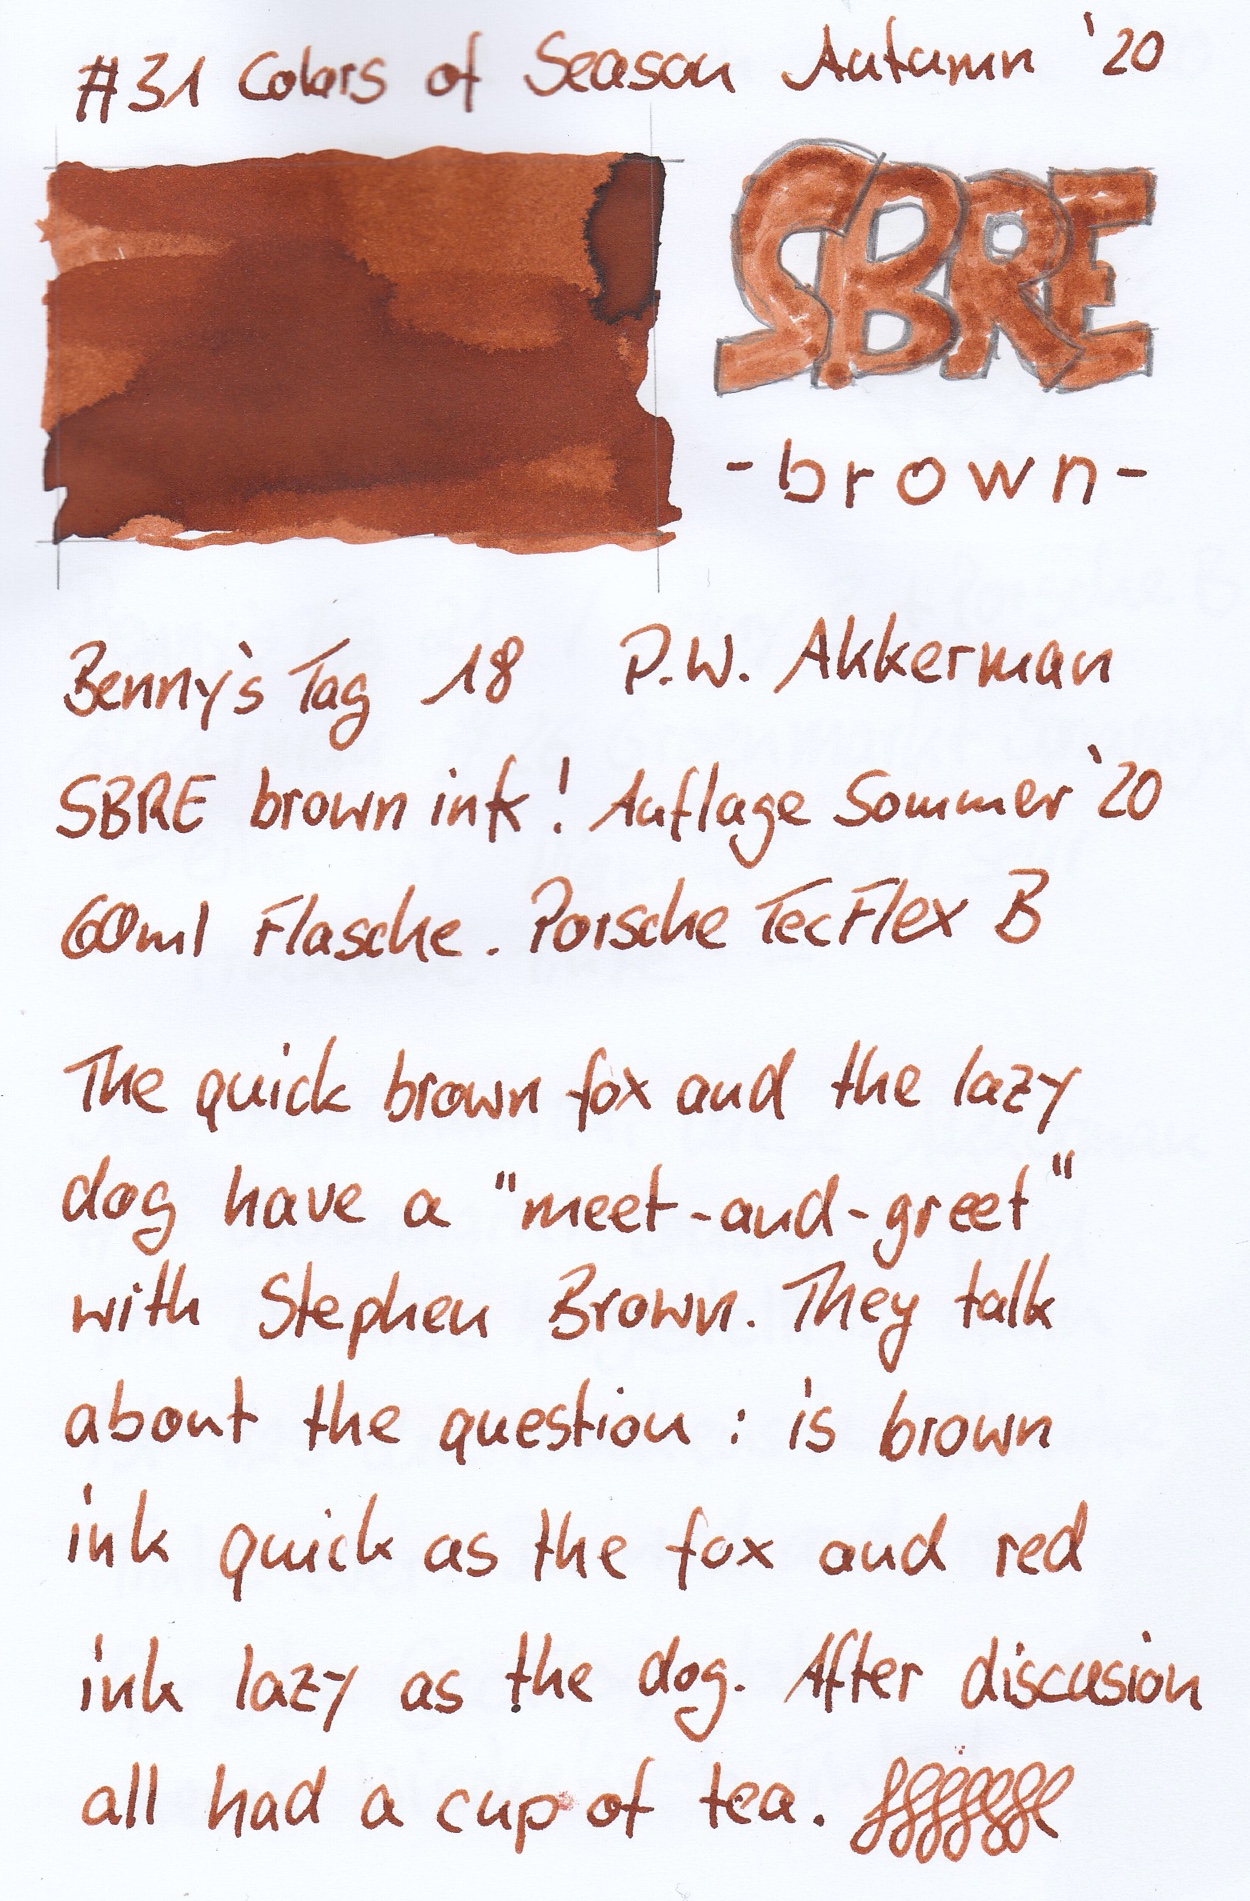 #31 Colors of Season Autumn '20
SBRE
-brown-
Benny's Tag 18 P.W. Akkerman
SBRE brown ink! Auflage Sommer '20
60ml Flasche. Porsche TecFlex B
The quick brown fox and the lazy
dog have a "meet-and-greet"
with Stephen Brown. They talk
about the question: is brown
ink quick as the fox and red
ink lazy as the dog. After discusion
all had a cup of tea.